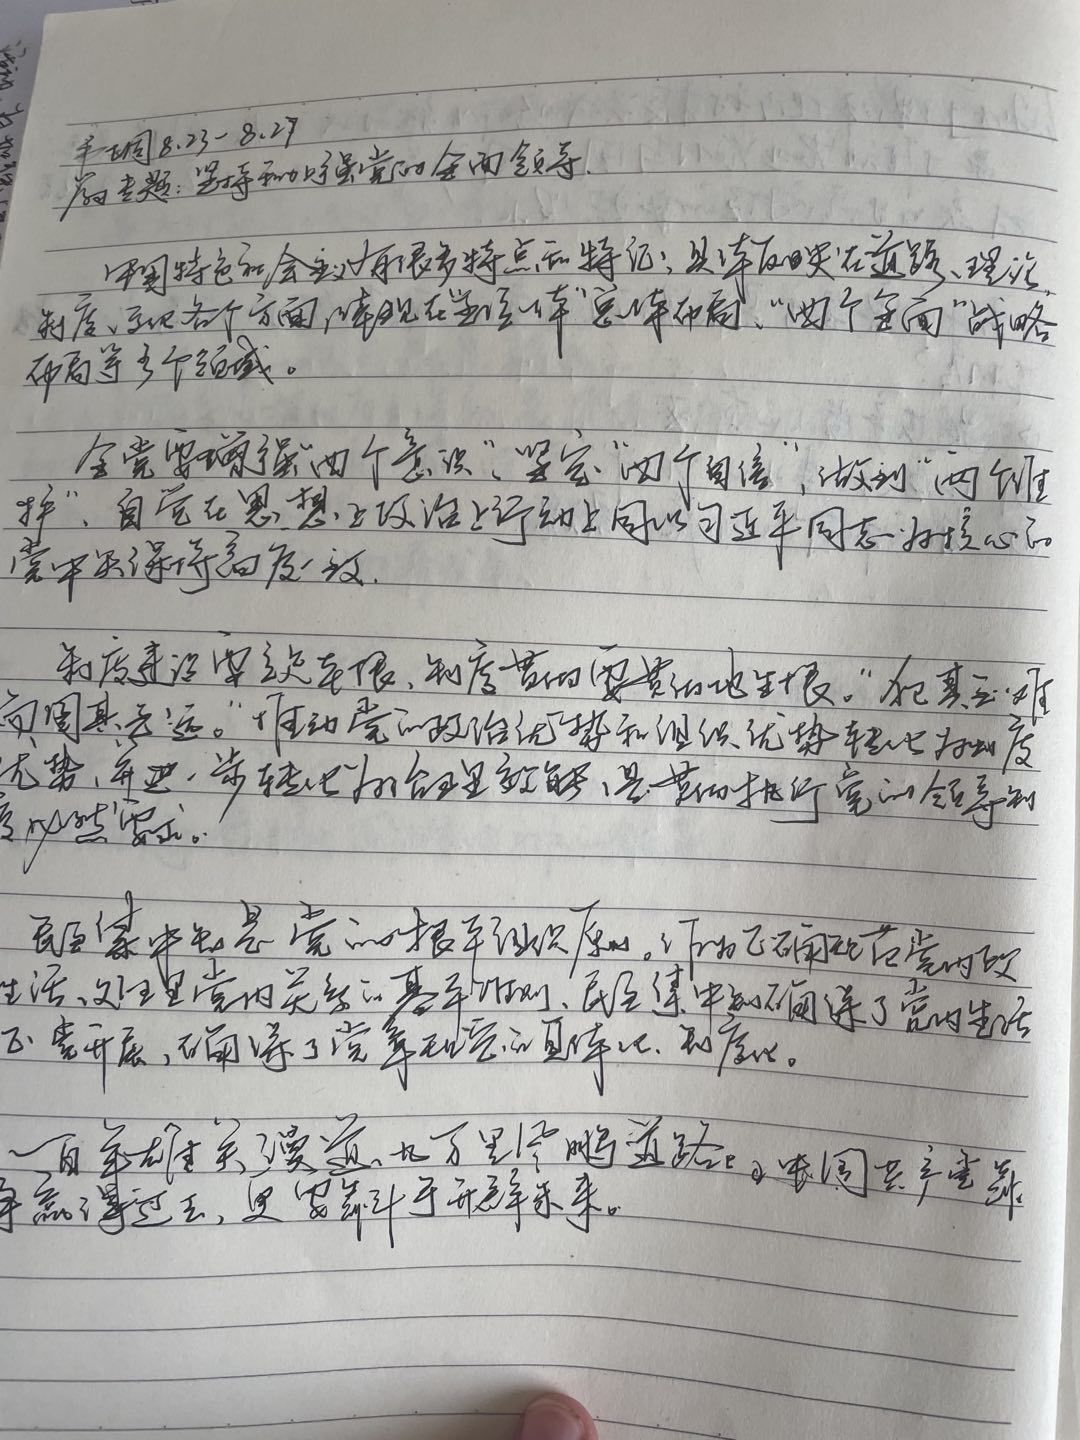 周8.23-8.27
专题：坚持和加强党的全面领导.
中国特色社会主义有很多特点和特征，具体反映在道路、理论、
制度、文化各个方面，体现在"五位一体"总体布局、"四个全面"战略
布局等多个领域。
全党要增强"四个意识"、坚定"四个自信"，做到"两个维
护"、自觉在思想上政治上行动上同以习近平同志为核心的
党中央保持高度一致.
制度建设要立足长根、制度贯彻要贯彻地生根。"犯其至难
而图其至远。"推动党的政治优势和组织优势转化为制度
优势、并进一步转化为治理效能、是贯彻执行党的领导制
度必然要求。
民主集中制是党的根本组织原则。作为正确规范党内政
生活、处理党内关系的基本准则、民主集中制确保了党内生活
正常开展，确保了党章规定的具体化、制度化。
一百年雄关漫道、九万里风鹏道路。中国共产党奋
斗赢得过去，更要奋斗于开辟未来。